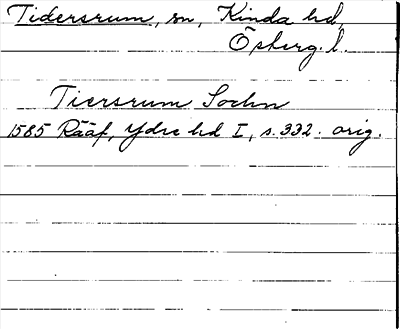 Tidersrum, sn, Kinda hd,
Österg. l.
Tiersrum Sochn
1585 Rääf, Ydre hd I, s. 332. orig.